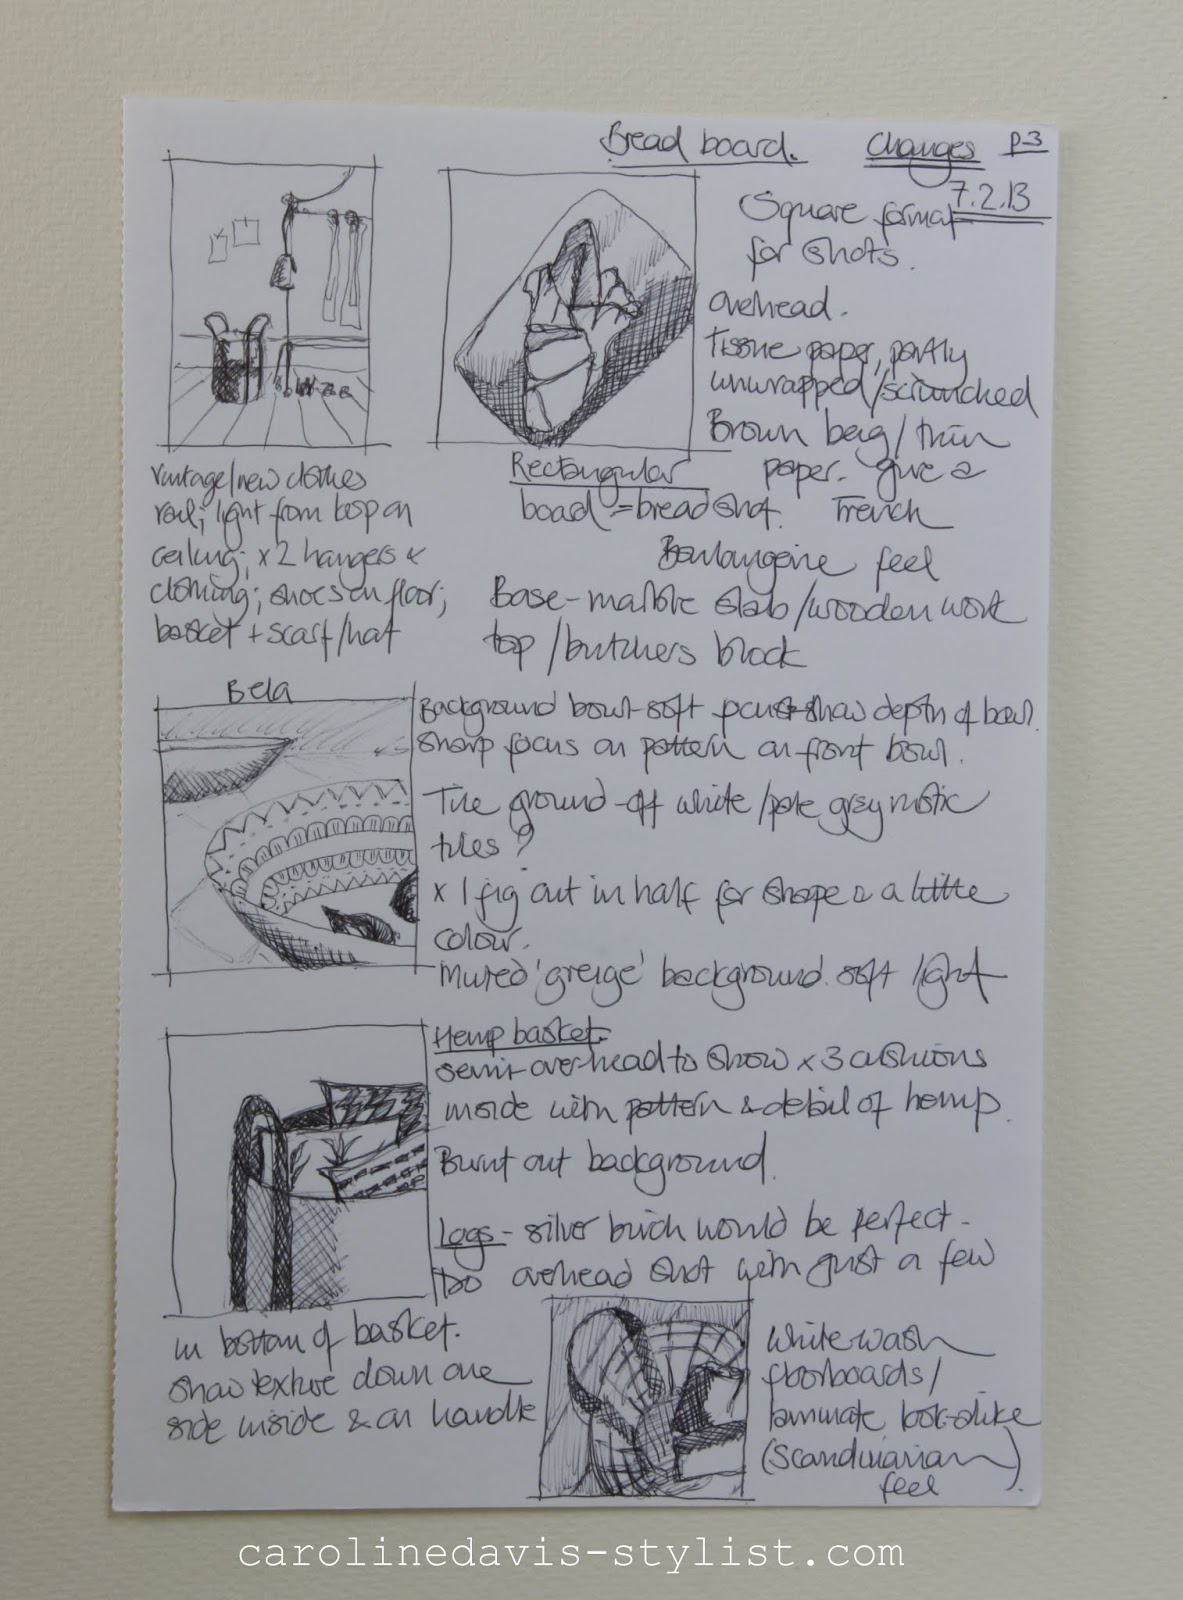 Bread board. Changes p3
7.2.13
Square format
for shots.
overhead.
Tissue paper, partly
unwrapped/scrunched
Brown bag/thin
paper. give a
French
Boulangerie feel
Rectangular
board = bread shot.
Base - marble slab/wooden work
top/butchers block
vintage/new clothes
rail; light from loop on
ceiling; x 2 hangers &
clothing; shoes on floor;
basket + scarf/hat
Bela
Background bowl - soft focus + show depth of bowl.
sharp focus on pattern on front bowl.
Tile ground - off white/pale grey rustic
tiles?
x 1 fig cut in half for shape & a little
colour.
Muted 'greige' background. soft light
Hemp basket.
semi-overhead to show x 3 cushions
inside with pattern & detail of hemp.
Burnt out background.
Logs - silver birch would be perfect -
do overhead shot with just a few
in bottom of basket.
show texture down one
side inside & on handle
White wash
floorboards/
laminate look-alike
(Scandinavian)
feel
carolinedavis-stylist.com